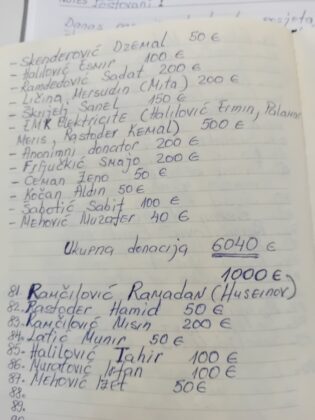 Poštovani
Danas
- Skenderović Džemal 50 €
- Halilović Esmir 100 €
- Ramdedović Sadat 200 €
- Ličina Mersudin (Mita) 200 €
- Škrijelj Sanel 150 €
- EMR Elektricite (Halilović Ermin, Palamar
Meris, Rastoder Kemal) 500 €
- Anonimni donator 200 €
- Frljučkić Smajo 200 €
- Ceman Zeno 50 €
- Kočan Aldin 50 €
- Šabotić Sabit 100 €
- Mehović Muzafer 40 €
Ukupna donacija 6040 €
1000 €
81. Ramčilović Ramadan (Huseinov)
82. Rastoder Hamid 50 €
83. Ramčilović Nisin 200 €
84. Latić Munir 50 €
85. Halilović Tahir 100 €
86. Muratović Isfan 100 €
87. Mehović Izet 50 €
88.
89.